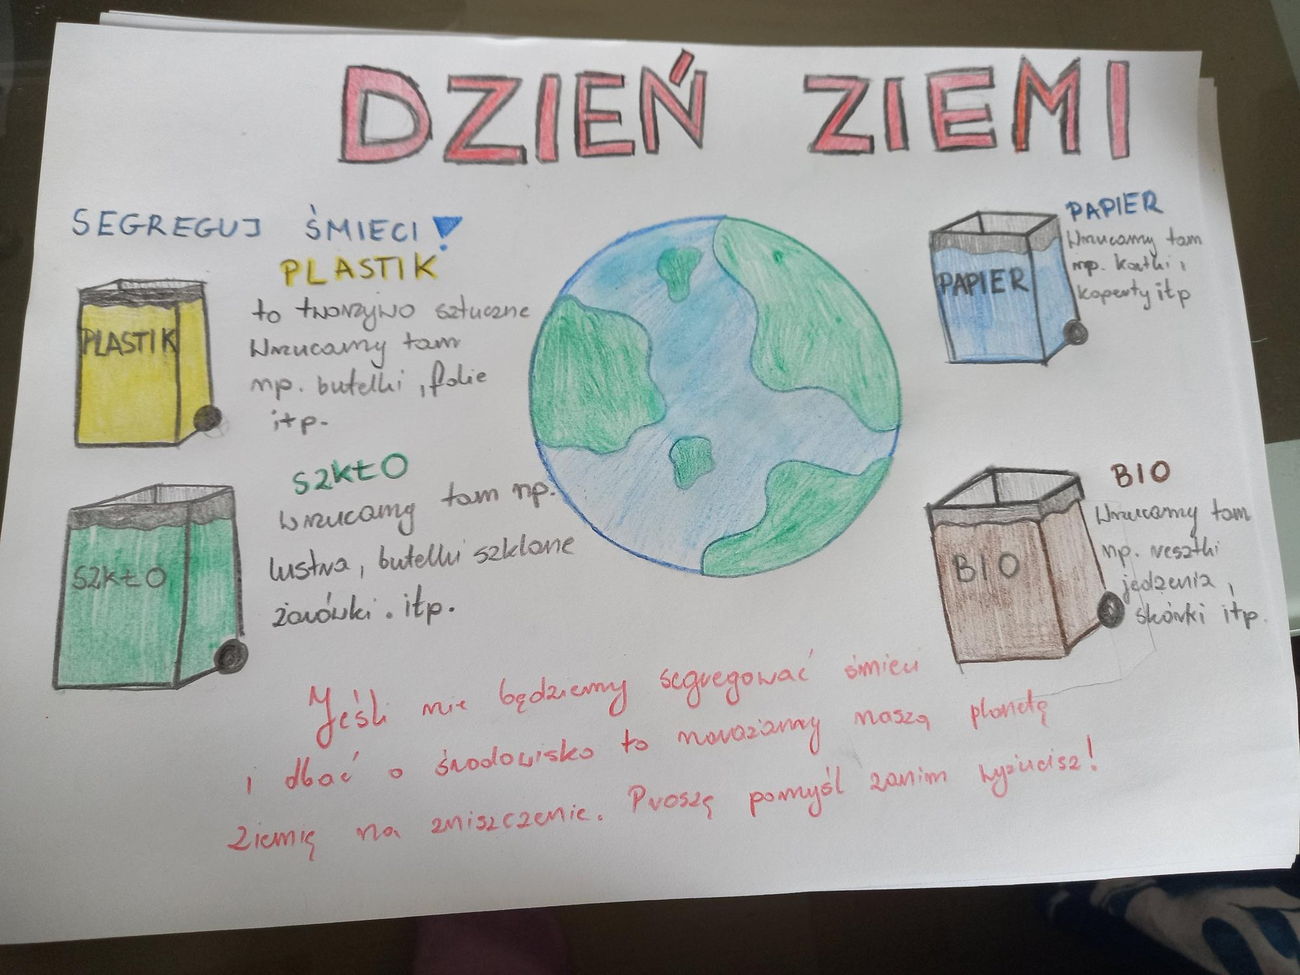 DZIEŃ ZIEMI
SEGREGUJ ŚMIECI!
PLASTIK
PLASTIK
to tworzywo sztuczne
Wrzucamy tam
np. butelki, folie
itp.
SZKŁO
SZKŁO
Wrzucamy tam np.
lustra, butelki szklane
żarówki. itp.
PAPIER
PAPIER
Wrzucamy tam
np. kartki,
koperty itp
BIO
BIO
Wrzucamy tam
np. resztki
jedzenia,
skórki itp.
Jeśli nie będziemy segregować śmieci
i dbać o środowisko to narażamy naszą planetę
Ziemię na zniszczenie. Proszę pomyśl zanim wyrzucisz!